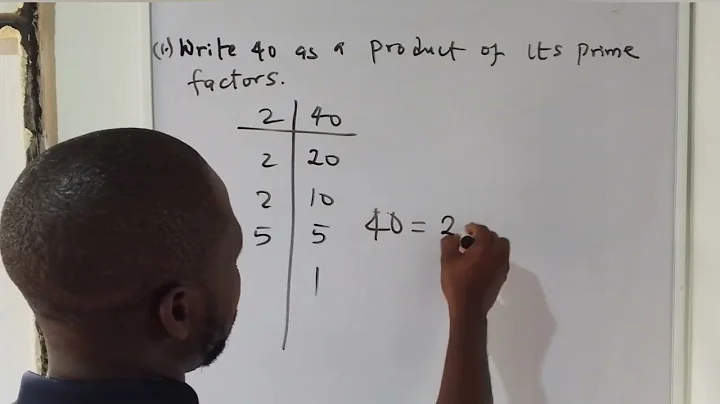 (1.) Write 40 as a product of its prime
factors.
2 | 40
2 | 20
2 | 10
5 | 5
| 1
40 = 2